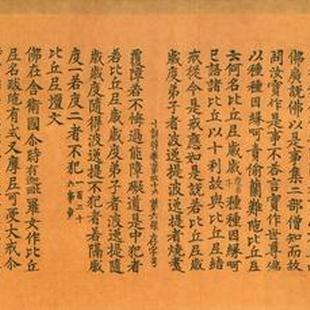 佛廣說佛以是事集二部僧知而故
問汝實作是事不答言實作世尊佛
以種種因緣呵責偷蘭難陀比丘尼
云何名比丘尼歲歲種種因緣呵
已語諸比丘以十利故與比丘尼結
戒從今是戒應如是說若比丘尼歲
歲度弟子者波逸提波逸提者燒煑
覆障若不悔過能障礙道是中犯者
若比丘尼歲歲度弟子者波逸提隨
歲歲度隨得波逸提不犯者若隔歲
度一若度二者不犯 一百二十六事
比丘尼壇文
佛在舍衛國尒時有羅女作比丘
尼名跋陁有式叉摩尼可受大戒尒